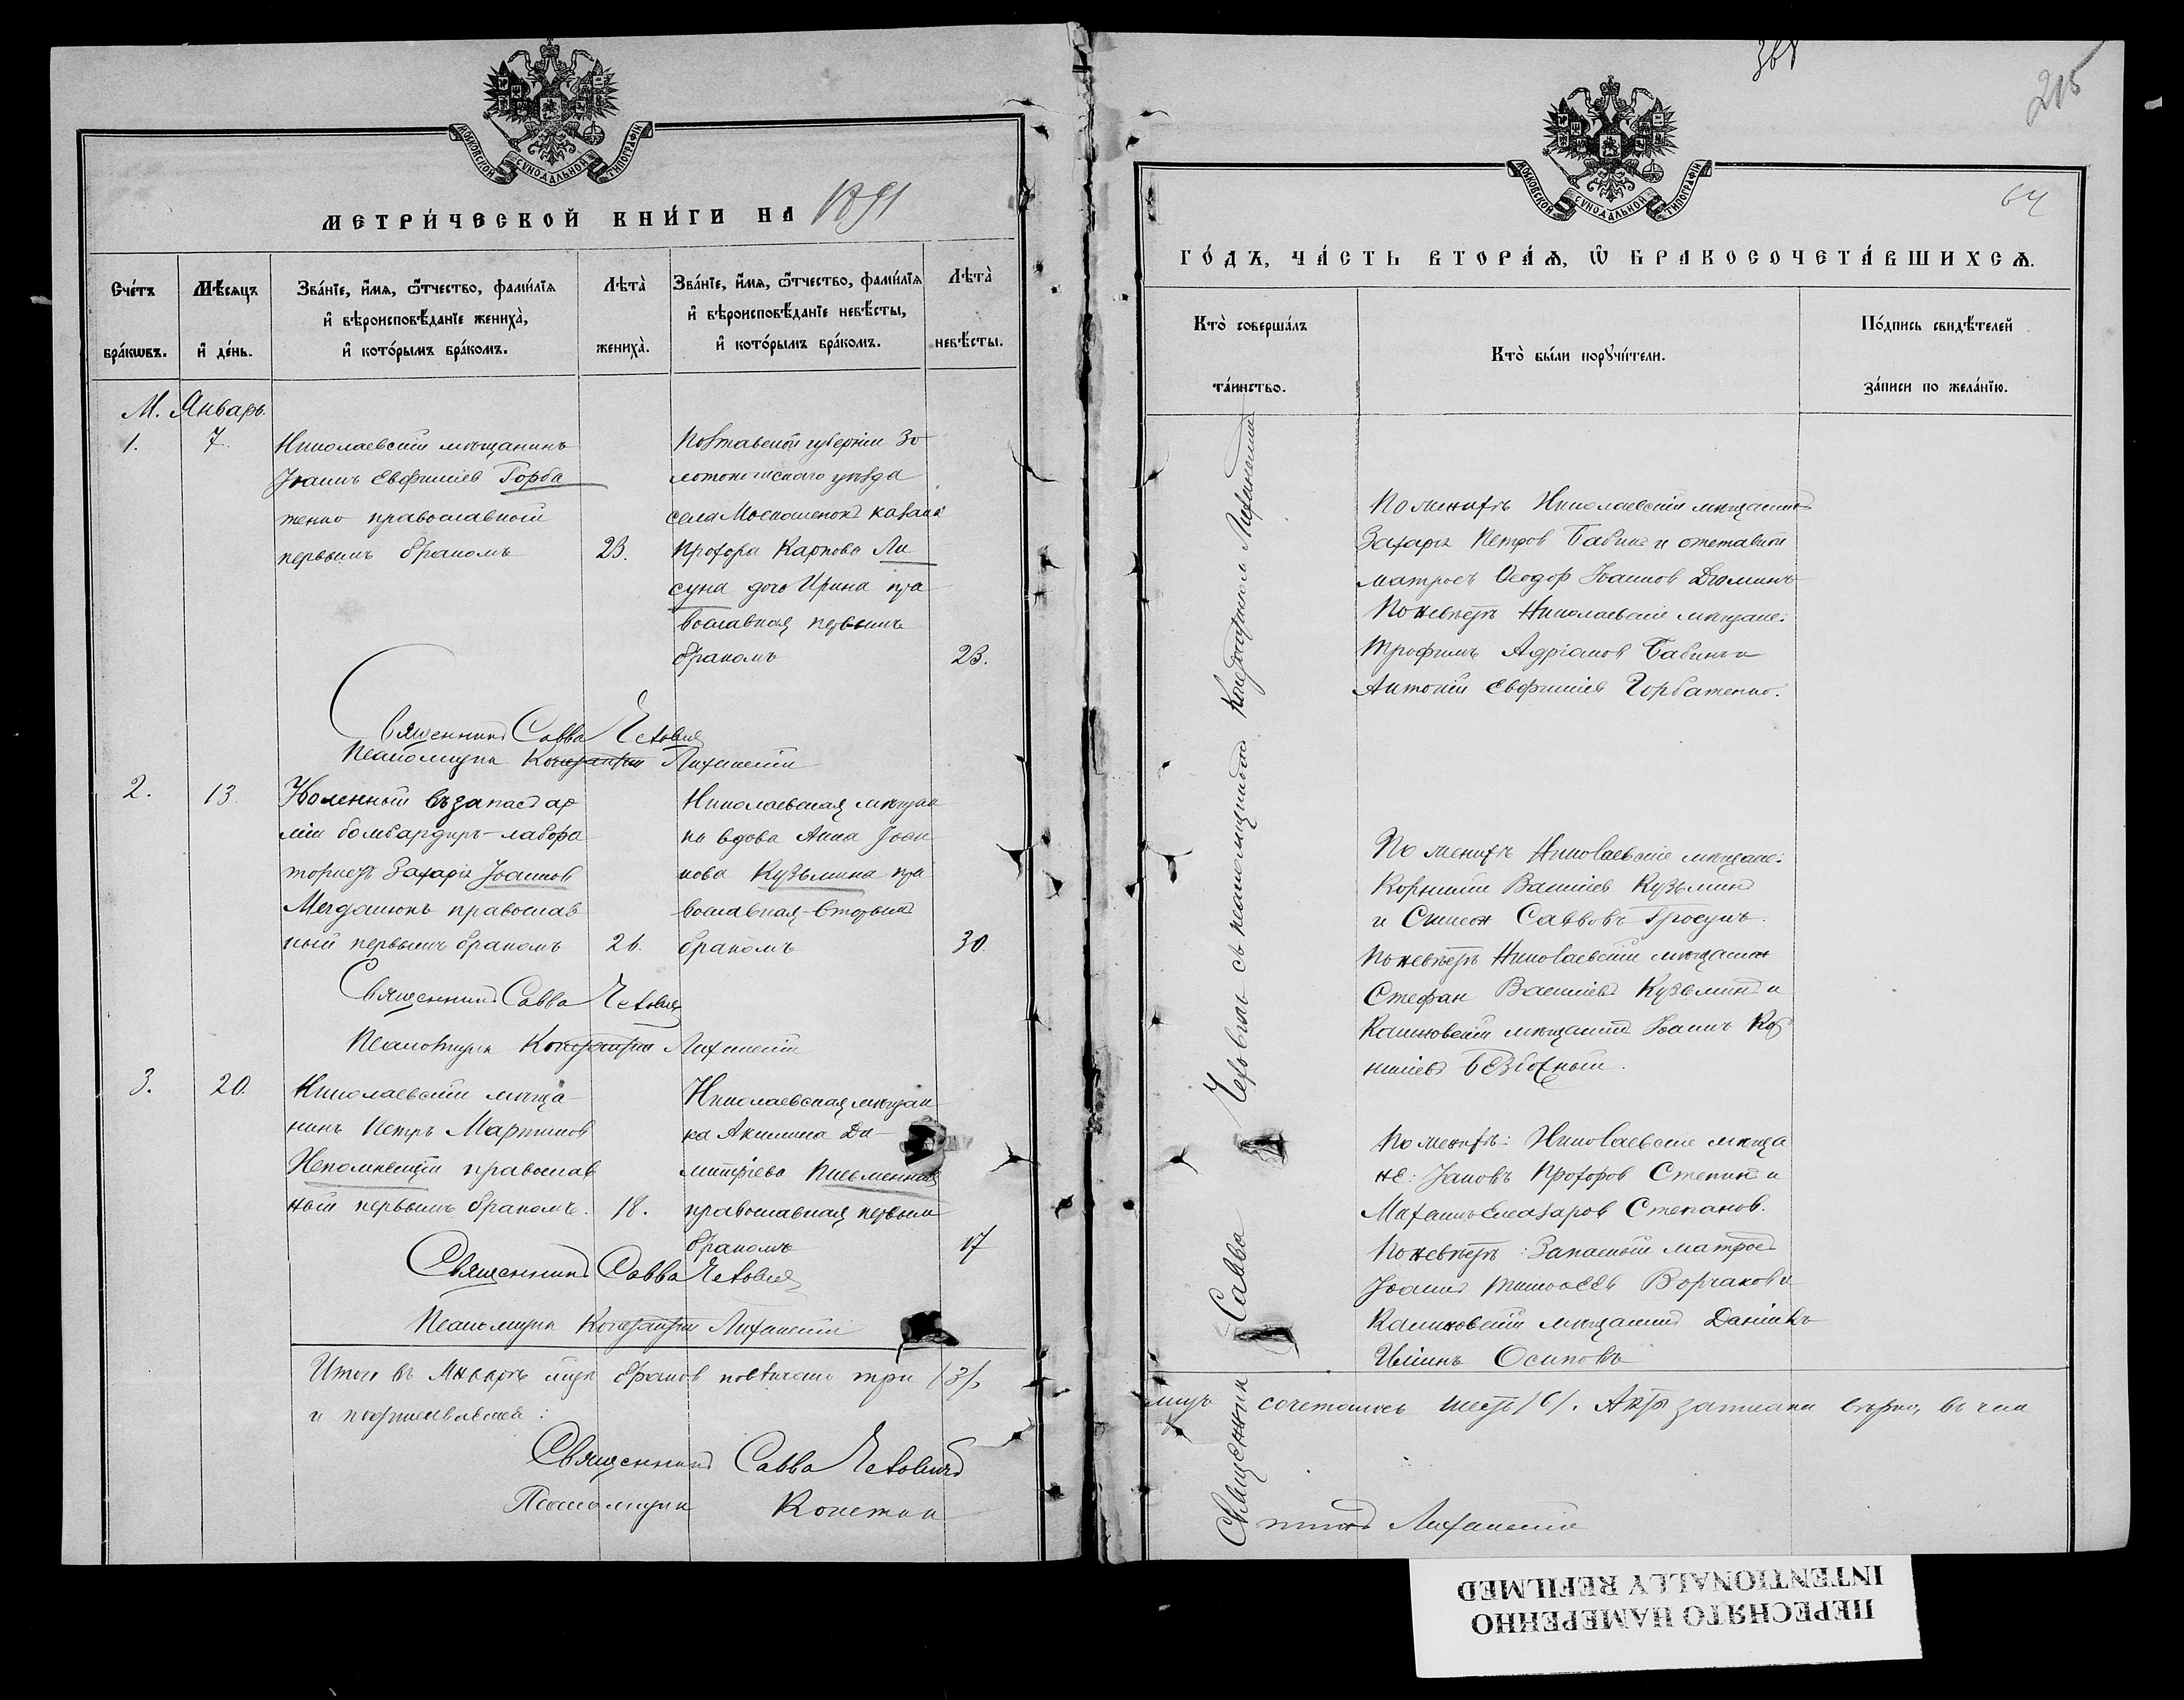 МОСКОВСКОЙ СУНОДАЛЬНОЙ ТИПОГРАФІИ
МЕТРИ́ЧЕСКОЙ КНИ́ГИ НА 1891
Сче́тъ бра́кωвъ.
Мѣ́сяцъ и҆ де́нь.
Зва́нїе, и҆́мѧ, ѻ҆́тчество, фами́лїѧ
и҆ вѣроисповѣ́данїе жениха̀,
и҆ кото́рымъ бра́комъ.
Лѣта̀ жениха̀.
Зва́нїе, и҆́мѧ, ѻ҆́тчество, фами́лїѧ
и҆ вѣроисповѣ́данїе невѣ́сты,
и҆ кото́рымъ бра́комъ.
Лѣта̀ невѣ́сты.
М. Январь.
1.
7.
Николаевскій мѣщанинъ
Іоаннъ Евфиміев Горба
тенко православный
первымъ бракомъ
23.
Полтавской губерніи Зо
лотоношскаго уѣзда
села Москаленокъ козака
Прохора Карпова Ли
суна дочь Ирина пра
вославная первымъ
бракомъ
23.
Священникъ Савва
Псаломщикъ Константин Лихинскій
2.
13.
Уволенный въ запасъ ар
міи бомбардиръ-лабора
тористъ Захарія Іоаннов
православ
ный первымъ бракомъ
26.
Николаевская мѣщан
ка вдова Анна Іоан
нова Кузьмина пра
вославная вторымъ
бракомъ
30.
Священникъ Савва
Псаломщикъ Константин Лихинскій
3.
20.
Николаевскій мѣща
нинъ Петръ Мартинов
Непомнящій православ
ный первымъ бракомъ.
18.
Николаевская мѣщан
ка Акилина Ди-
митріева Письменная
православная первымъ
бракомъ
17
Священникъ Савва
Псаломщикъ Константин Лихинскій
Итого въ Январѣ мцѣ браков повѣнчано три /3/,
Священникъ Савва
Псаломщикъ Констан
215
64
МОСКОВСКОЙ СУНОДАЛЬНОЙ ТИПОГРАФІИ
ГО́ДЪ, ЧА́СТЬ ВТОРА́Ѧ, Ѽ БРАКОСОЧЕТА́ВШИХСѦ.
Кто̀ соверша́лъ
та́инство.
Кто̀ бы́ли порꙋчи́тели.
По́дпись свидѣ́телей
за́писи по жела́нїю.
Священник Савва съ псаломщикомъ Константином Лихинскимъ
По женихѣ Николаевскій мѣщанинъ
Захарія Петров Бабич и отставной
матросъ Ѳеодор Іоаннов Дюминъ
По невѣстѣ Николаевскіе мѣщане:
Трофимъ Адріанов Бабичъ и
Антоній Евфиміев Горбатенко.
По женихѣ Николаевскіе мѣщане:
Корнилій Василіев Кузьминъ
и Симеон Саввовъ
По невѣстѣ Николаевскій мѣщанин
Стефан Василіевъ Кузьминъ и
мѣщанинъ Іоаннъ Кор
ниліевъ
По женихѣ: Николаевскіе мѣща
не: Іаковъ Прохоров Степин и
Михаилъ Елеазаров Степанов.
По невѣстѣ: Запасный матросъ
Іоаннъ Тимоѳеевъ и
мѣщанинъ Даніилъ
Осиповъ
лицъ сочеталось шесть /6/. Акты записаны вѣрно, въ чем
тинъ Лихинскій
ПЕРЕСНЯТО НАМЕРЕННО
INTENTIONALLY REFILMED